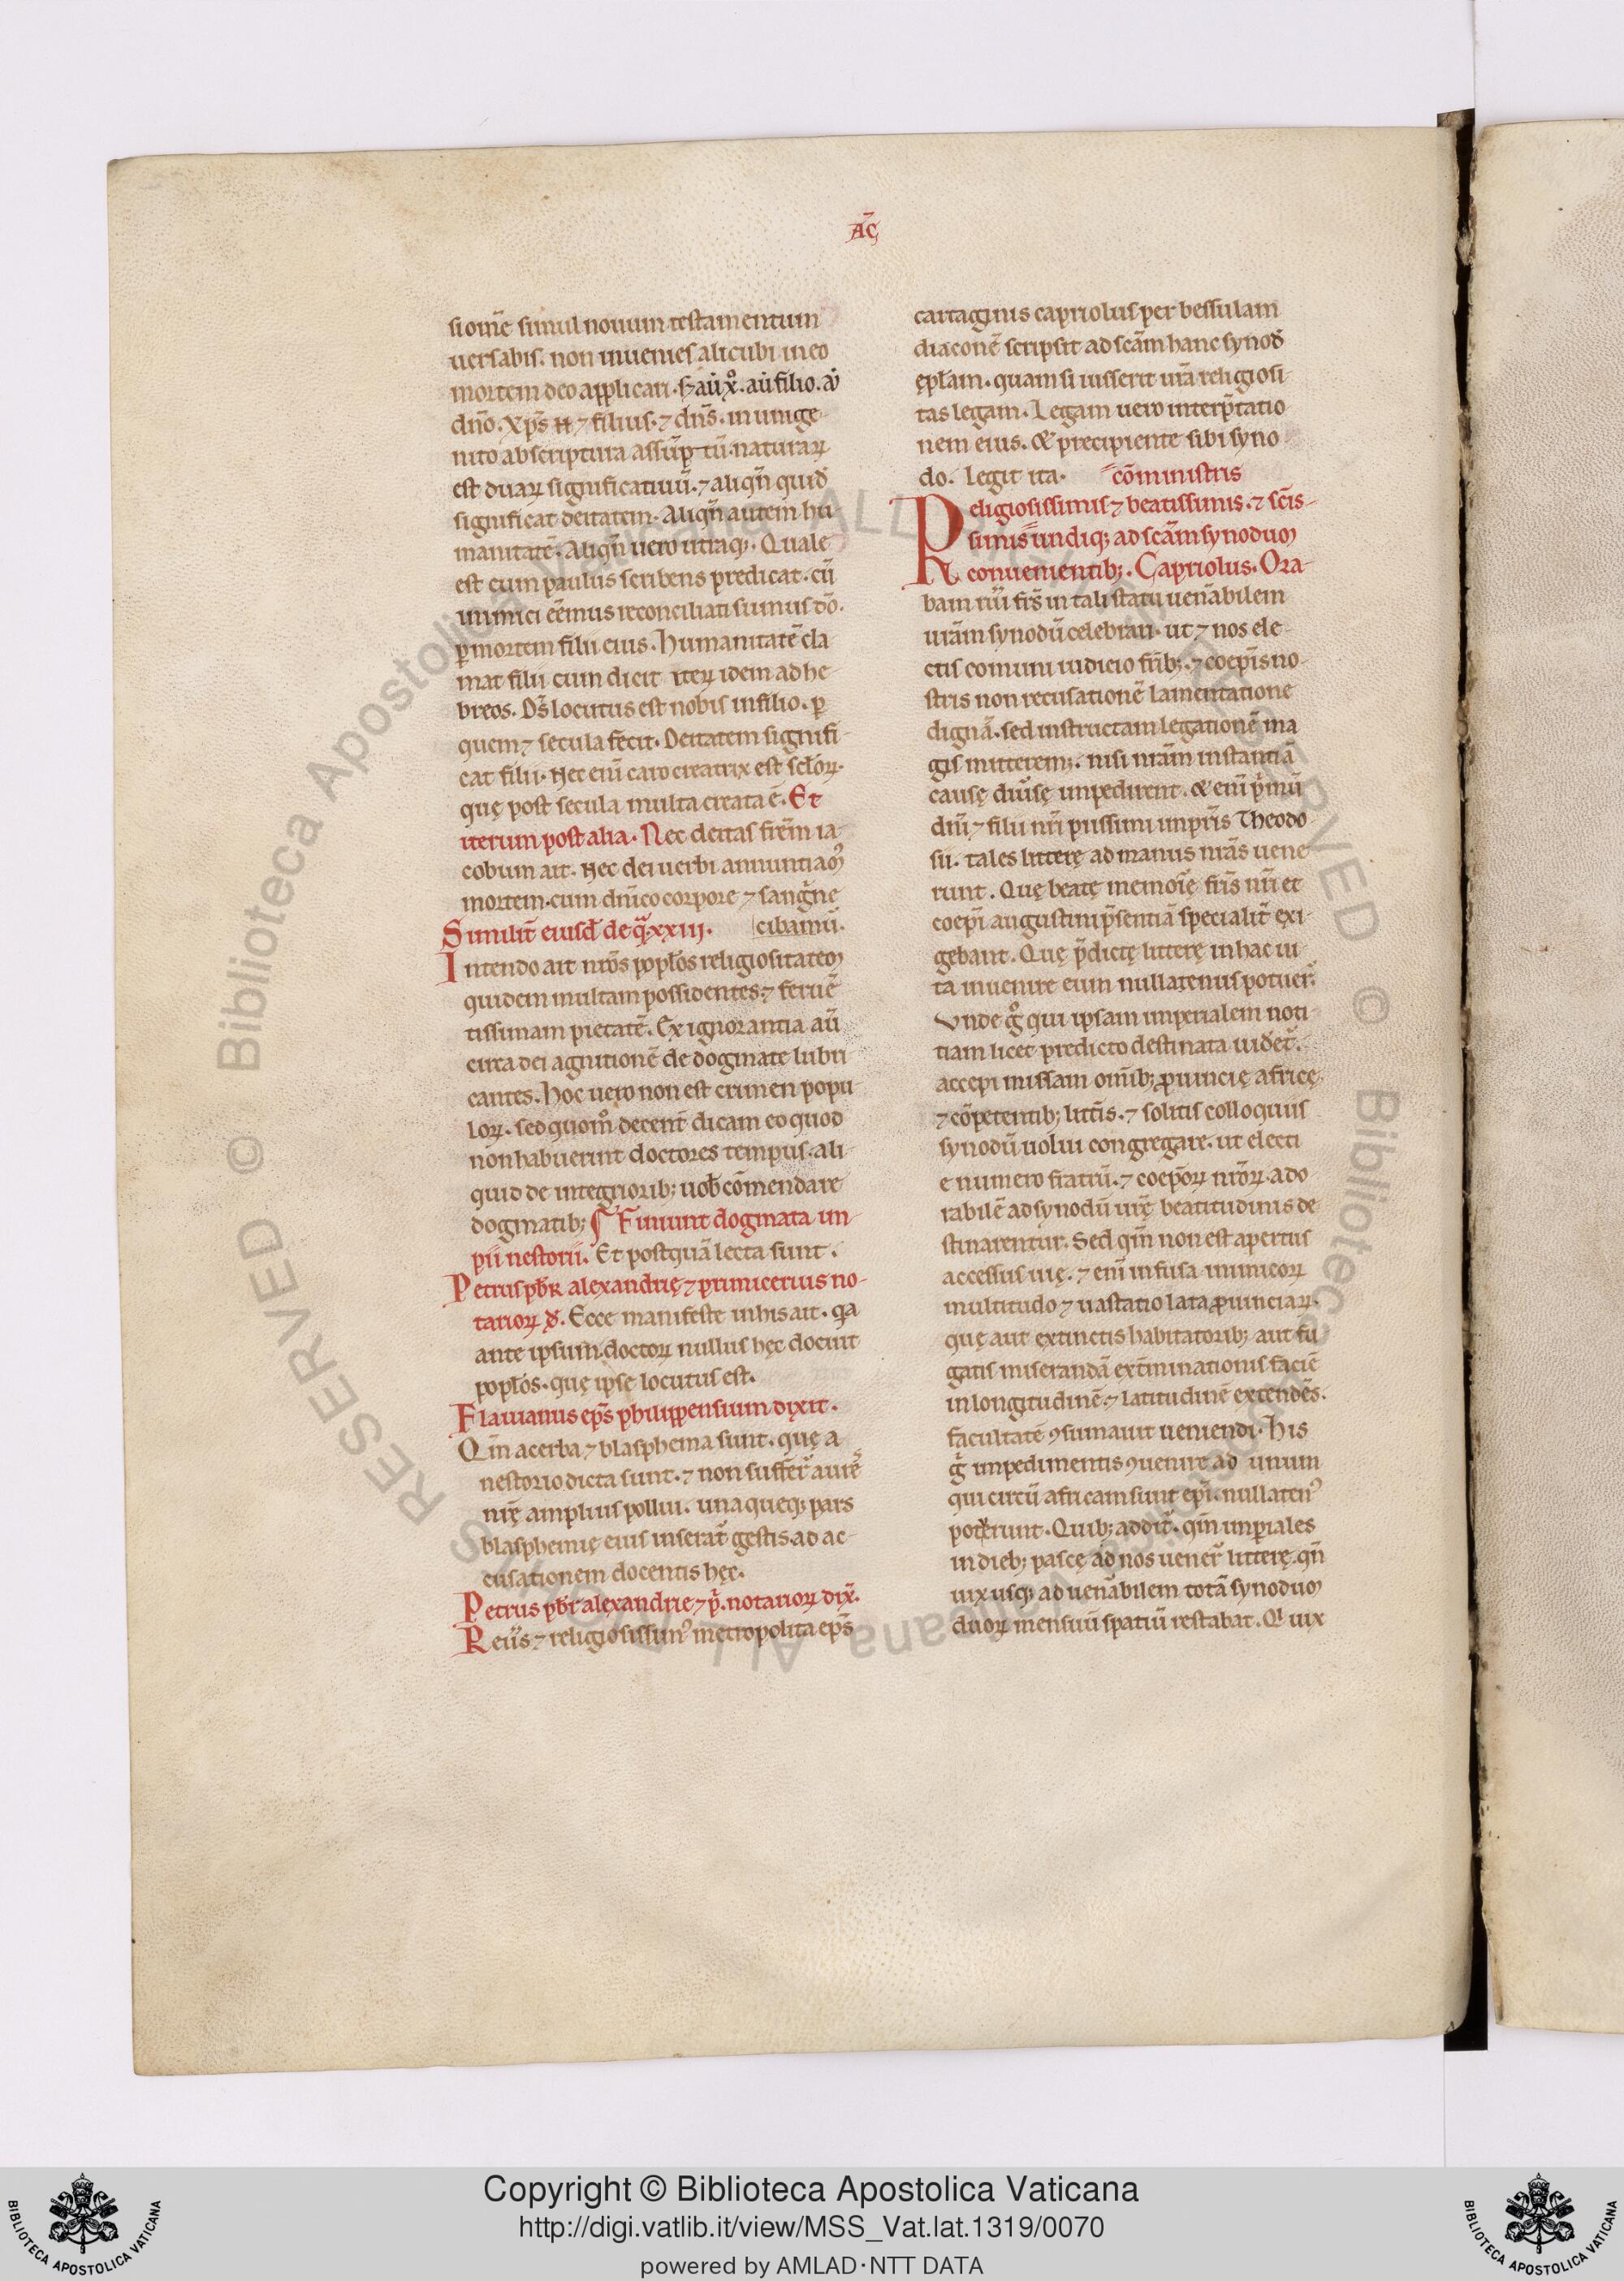 AC̄
siom̄e simul nouum testamentum
uersabis. non inuenies alicubi in eo
mortem deo applicari. s; aut xp̄o. aut filio. aut
dn̄o. Xp̄s n̄ ⁊ filius. ⁊ dn̄s. in unige-
nito ab scriptura assūptū. naturaꝝ
est duaꝝ significatiuū. ⁊ aliqn̄ quid̄
significat deitatem. Aliqn̄ autem hu
manitatē. Aliqn̄ uero utraq;. Quale
est cum paulus scribens predicat. cū
inimici eēmus reconciliati sumus dō.
ꝑ mortem filii eius. Humanitatē cla
mat filii cum dicit iteꝝ idem ad he-
breos. Ds̄ locutus est nobis in filio. ꝑ
quem ⁊ secula fecit. Deitatem signifi-
cat filii. Nec enī caro creatrix est sc̄loꝝ.
quę post secula multa creata ē. Et
iterum post alia. Nec deitas frēm ia-
cobum ait. Nec dei uerbi annuntiam᷒
mortem. cum dn̄ico corpore ⁊ sanguine
Similit̄ eiusd̄ de q̄. xxiij. cibamur.
Intendo ait nrōs popl̄os religiositatem
quidem multam possidentes. ⁊ feruē
tissimam pietatē. Ex ignorantia aū
circa dei agnitionē de dogmate lubri
cantes. Hoc uero non est crimen popu
loꝝ. sed quom̊ decent̄ dicam eo quod
non habuerint doctores tempus. ali-
quid de integriorib; uob̄ cōmendare
dogmatib; ¶ Finiunt dogmata im-
pii nestorii. Et postquā lecta sunt.
Petrus pb̄r alexandrię ⁊ primicerius no-
tarioꝝ đ. Ecce manifeste in his ait. qa
ante ipsum doctoꝝ nullus hęc docuit
popl̄os. quę ipse locutus est.
Flauianus ep̄s philippensium dixit.
Qm̄ acerba ⁊ blasphema sunt. quę a
nestorio dicta sunt. ⁊ non suffer̄t aures
nrę amplius pollui. unaqueq; pars
blasphemię eius inserat̄ gestis. ad ac-
cusationem docentis hęc.
Petrus pb̄r alexandrie ⁊ p̄. notarioꝝ dix̄.
Reuīs ⁊ religiosissim᷒ metropolita ep̄s
cartaginis capriolus per bessulam
diaconē scripsit ad scām hanc synod̄
epl̄am. quam si iusserit urā religiosi-
tas legam. Legam uero interp̄tatio
nem eius. & precipiente sibi syno
do. Legit ita. cōministris
Religiosissimis ⁊ beatissimis. ⁊ scīs-
simis undiq; ad scām synodum
conuenientib;. Capriolus. Ora-
bam riū frs̄ in tali statu uenābilem
urām synodū celebrari. ut ⁊ nos ele-
ctis comuni iudicio frīb;. ⁊ coep̄is no-
stris non recusationē lamentatione
dignā. sed instructam legationē ma
gis mitterem;. nisi nrām instantiā
causę diuīsę impedirent. & enī p̄mū
dn̄i ⁊ filii nr̄i piissimi impr̄is Theodo
sii. tales litterę ad manus nrās uene
runt. Quę beatę memoīę frīs nrī et
coep̄i augustini p̄sentiā specialit̄ exi-
gebant. Quę p̄dictę litterę in hac ui-
ta inuenire eum nullatenus potuer̄.
Vnde g̊ qui ipsam imperialem noti-
tiam licet predicto destinata uideret̄.
accepi missam om̄ib; ꝓuincię africę.
⁊ cōpetentib; litt̄is. ⁊ solitis colloquiis
synodū uolui congregare. ut electi
e numero fratrū. ⁊ coep̄oꝝ nrōꝝ. ado
rabilē ad synodū urę beatitudinis de
stinarentur. Sed qm̄ non est apertus
accessus uię. ⁊ enī infusa inimicoꝝ
multitudo ⁊ uastatio lata ꝓuinciaꝝ.
quę aut extinctis habitatorib; aut fu
gatis miserandā ext̄minationis faciē
in longitudinē. ⁊ latitudinē extendēs.
facultatē ꝯsumauit ueniendi. His
g̊ impedimentis ꝯuenire ad unum
qui circū africam sunt ep̄i. nullaten᷒
poterunt. Quib; addit̄. qm̄ imp̄iales
in dieb; pascę ad nos uener̄ litterę. qn̄
uix usq; ad uenābilem totā synodum
duoꝝ mensuū spatiū restabat. Qd̄ uix
Copyright © Biblioteca Apostolica Vaticana
http://digi.vatlib.it/view/MSS_Vat.lat.1319/0070
powered by AMLAD·NTT DATA
BIBLIOTECA APOSTOLICA VATICANA
BIBLIOTECA APOSTOLICA VATICANA